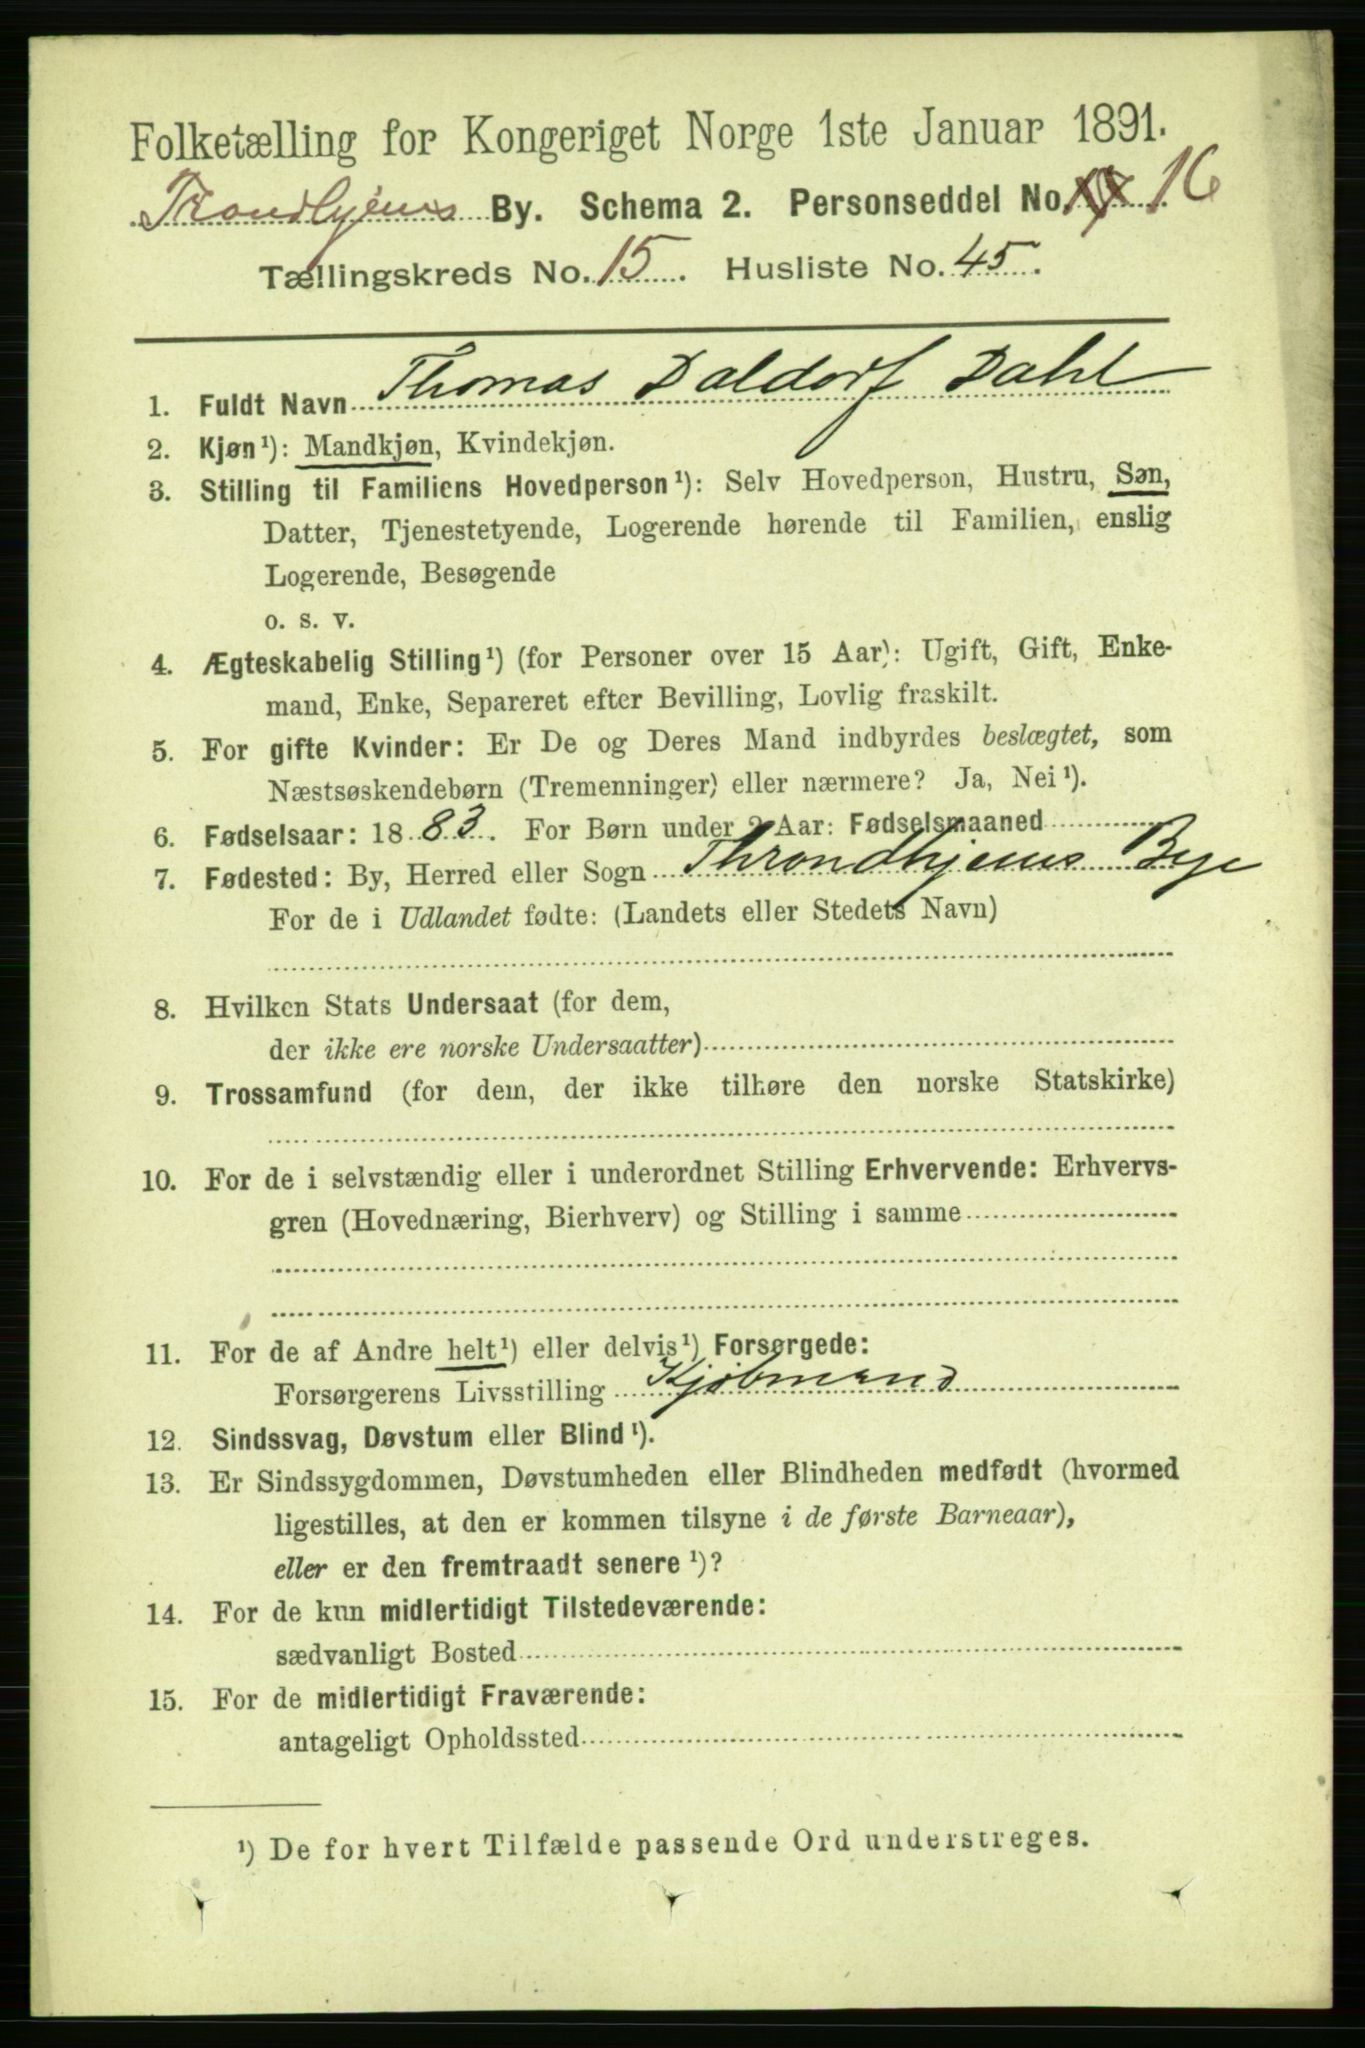 Folketælling for Kongeriget Norge 1ste Januar 1891.
Trondhjems By. Schema 2. Personseddel No. 16
Tællingskreds No. 15. Husliste No. 45.
1. Fuldt Navn Thomas Daldorf Dahl
2. Kjøn¹): Mandkjøn, Kvindekjøn.
3. Stilling til Familiens Hovedperson¹): Selv Hovedperson, Hustru, Søn,
Datter, Tjenestetyende, Logerende hørende til Familien, enslig
Logerende, Besøgende
o. s. v.
4. Ægteskabelig Stilling¹) (for Personer over 15 Aar): Ugift, Gift, Enke-
mand, Enke, Separeret efter Bevilling, Lovlig fraskilt.
5. For gifte Kvinder: Er De og Deres Mand indbyrdes beslægtet, som
Næstsøskendebørn (Tremenninger) eller nærmere? Ja, Nei¹).
6. Fødselsaar: 1883. For Børn under 2 Aar: Fødselsmaaned
7. Fødested: By, Herred eller Sogn Throndhjems Bye
For de i Udlandet fødte: (Landets eller Stedets Navn)
8. Hvilken Stats Undersaat (for dem,
der ikke ere norske Undersaatter)
9. Trossamfund (for dem, der ikke tilhøre den norske Statskirke)
10. For de i selvstændig eller i underordnet Stilling Erhvervende: Erhvervs-
gren (Hovednæring, Bierhverv) og Stilling i samme
11. For de af Andre helt¹) eller delvis¹) Forsørgede:
Forsørgerens Livsstilling Kjøbmand
12. Sindssvag, Døvstum eller Blind¹).
13. Er Sindssygdommen, Døvstumheden eller Blindheden medfødt (hvormed
ligestilles, at den er kommen tilsyne i de første Barneaar),
eller er den fremtraadt senere¹)?
14. For de kun midlertidigt Tilstedeværende:
sædvanligt Bosted
15. For de midlertidigt Fraværende:
antageligt Opholdssted
¹) De for hvert Tilfælde passende Ord understreges.